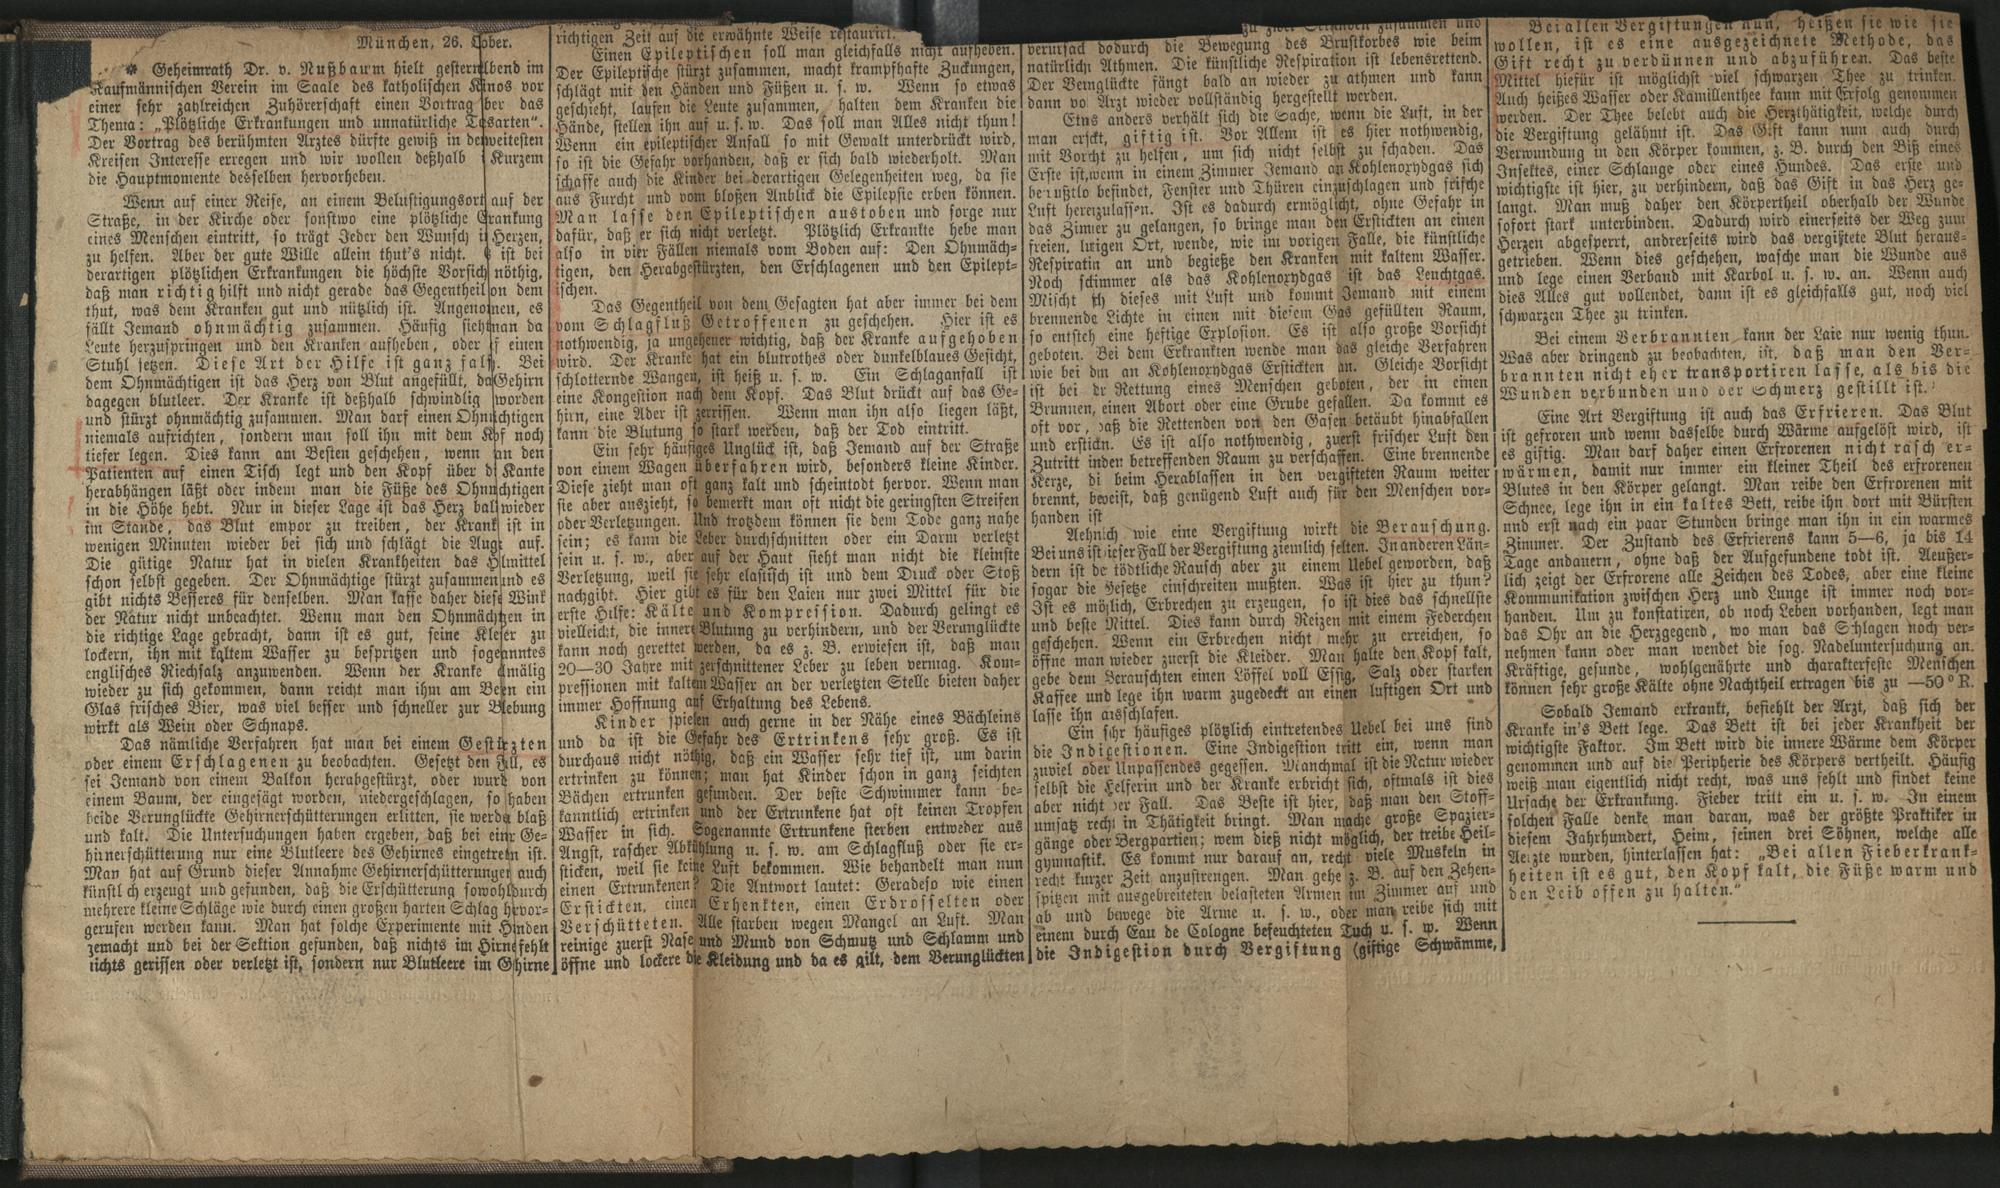 München, 26. Ober.
* Geheimrath Dr. v. Nußbaum hielt gestern Abend im
Kaufmännischen Verein im Saale des katholischen Kasinos vor
einer sehr zahlreichen Zuhörerschaft einen Vortrag über das
Thema: „Plötzliche Erkrankungen und unnatürliche Todesarten“.
Der Vortrag des berühmten Arztes dürfte gewiß in den weitesten
Kreisen Interesse erregen und wir wollen deßhalb Kurzem
die Hauptmomente desselben hervorheben.
Wenn auf einer Reise, an einem Belustigungsort auf der
Straße, in der Kirche oder sonstwo eine plötzliche Erkrankung
eines Menschen eintritt, so trägt Jeder den Wunsch im Herzen,
zu helfen. Aber der gute Wille allein thut's nicht. Es ist bei
derartigen plötzlichen Erkrankungen die höchste Vorsicht nöthig,
daß man richtig hilft und nicht gerade das Gegentheil von dem
thut, was dem Kranken gut und nützlich ist. Angenommen, es
fällt Jemand ohnmächtig zusammen. Häufig sieht man da
Leute herzuspringen und den Kranken aufheben, oder auf einen
Stuhl setzen. Diese Art der Hilfe ist ganz falsch. Bei
dem Ohnmächtigen ist das Herz von Blut angefüllt, das Gehirn
dagegen blutleer. Der Kranke ist deßhalb schwindlig geworden
und stürzt ohnmächtig zusammen. Man darf einen Ohnmächtigen
niemals aufrichten, sondern man soll ihn mit dem Kopf noch
tiefer legen. Dies kann am Besten geschehen, wenn man den
Patienten auf einen Tisch legt und den Kopf über die Kante
herabhängen läßt oder indem man die Füße des Ohnmächtigen
in die Höhe hebt. Nur in dieser Lage ist das Herz bald wieder
im Stande, das Blut empor zu treiben, der Kranke ist in
wenigen Minuten wieder bei sich und schlägt die Augen auf.
Die gütige Natur hat in vielen Krankheiten das Heilmittel
schon selbst gegeben. Der Ohnmächtige stürzt zusammen und es
gibt nichts Besseres für denselben. Man lasse daher diesen Wink
der Natur nicht unbeachtet. Wenn man den Ohnmächtigen in
die richtige Lage gebracht, dann ist es gut, seine Kleider zu
lockern, ihn mit kaltem Wasser zu bespritzen und sogenanntes
englisches Riechsalz anzuwenden. Wenn der Kranke allmälig
wieder zu sich gekommen, dann reicht man ihm am Besten ein
Glas frisches Bier, was viel besser und schneller zur Belebung
wirkt als Wein oder Schnaps.
Das nämliche Verfahren hat man bei einem Gestürzten
oder einem Erschlagenen zu beobachten. Gesetzt den Fall, es
sei Jemand von einem Balkon herabgestürzt, oder wurde von
einem Baum, der eingesägt worden, niedergeschlagen, so haben
beide Verunglückte Gehirnerschütterungen erlitten, sie werden blaß
und kalt. Die Untersuchungen haben ergeben, daß bei einer Ge-
hirnerschütterung nur eine Blutleere des Gehirnes eingetreten ist.
Man hat auf Grund dieser Annahme Gehirnerschütterungen auch
künstlich erzeugt und gefunden, daß die Erschütterung sowohl durch
mehrere kleine Schläge wie durch einen großen harten Schlag hervor-
gerufen werden kann. Man hat solche Experimente mit Hunden
gemacht und bei der Sektion gefunden, daß nichts im Hirne fehlt
nichts gerissen oder verletzt ist, sondern nur Blutleere im Gehirne
richtigen Zeit auf die erwähnte Weise restaurirt.
Einen Epileptischen soll man gleichfalls nicht aufheben.
Der Epileptische stürzt zusammen, macht krampfhafte Zuckungen,
schlägt mit den Händen und Füßen u. s. w. Wenn so etwas
geschieht, laufen die Leute zusammen, halten dem Kranken die
Hände, stellen ihn auf u. s. w. Das soll man Alles nicht thun!
Wenn ein epileptischer Anfall so mit Gewalt unterdrückt wird,
so ist die Gefahr vorhanden, daß er sich bald wiederholt. Man
schaffe auch die Kinder bei derartigen Gelegenheiten weg, da sie
aus Furcht und vom bloßen Anblick die Epilepsie erben können.
Man lasse den Epileptischen austoben und sorge nur
dafür, daß er sich nicht verletzt. Plötzlich Erkrankte hebe man
also in vier Fällen niemals vom Boden auf: Den Ohnmäch-
tigen, den Herabgestürzten, den Erschlagenen und den Epilept-
ischen.
Das Gegentheil von dem Gesagten hat aber immer bei dem
vom Schlagfluß Getroffenen zu geschehen. Hier ist es
nothwendig, ja ungeheuer wichtig, daß der Kranke aufgehoben
wird. Der Kranke hat ein blutrothes oder dunkelblaues Gesicht,
schlotternde Wangen, ist heiß u. s. w. Ein Schlaganfall ist
eine Kongestion nach dem Kopf. Das Blut drückt auf das Ge-
hirn, eine Ader ist zerrissen. Wenn man ihn also liegen läßt,
kann die Blutung so stark werden, daß der Tod eintritt.
Ein sehr häufiges Unglück ist, daß Jemand auf der Straße
von einem Wagen überfahren wird, besonders kleine Kinder.
Diese zieht man oft ganz kalt und scheintodt hervor. Wenn man
sie aber auszieht, so bemerkt man oft nicht die geringsten Streifen
oder Verletzungen. Und trotzdem können sie dem Tode ganz nahe
sein; es kann die Leber durchschnitten oder ein Darm verletzt
sein u. s. w., aber auf der Haut sieht man nicht die kleinste
Verletzung, weil sie sehr elastisch ist und dem Druck oder Stoß
nachgibt. Hier gibt es für den Laien nur zwei Mittel für die
erste Hilfe: Kälte und Kompression. Dadurch gelingt es
vielleicht, die innere Blutung zu verhindern, und der Verunglückte
kann noch gerettet werden, da es z. B. erwiesen ist, daß man
20—30 Jahre mit zerschnittener Leber zu leben vermag. Kom-
pressionen mit kaltem Wasser an der verletzten Stelle bieten daher
immer Hoffnung auf Erhaltung des Lebens.
Kinder spielen auch gerne in der Nähe eines Bächleins
und da ist die Gefahr des Ertrinkens sehr groß. Es ist
durchaus nicht nöthig, daß ein Wasser sehr tief ist, um darin
ertrinken zu können; man hat Kinder schon in ganz seichten
Bächen ertrunken gefunden. Der beste Schwimmer kann be-
kanntlich ertrinken und der Ertrunkene hat oft keinen Tropfen
Wasser in sich. Sogenannte Ertrunkene sterben entweder aus
Angst, rascher Abkühlung u. s. w. am Schlagfluß oder sie er-
sticken, weil sie keine Luft bekommen. Wie behandelt man nun
einen Ertrunkenen? Die Antwort lautet: Geradeso wie einen
Erstickten, einen Erhenkten, einen Erdrosselten oder
Verschütteten. Alle starben wegen Mangel an Luft. Man
reinige zuerst Nase und Mund von Schmutz und Schlamm und
öffne und lockere die Kleidung und da es gilt, dem Verunglückten
zu zwei Sekunden zusammen und
verursacht dadurch die Bewegung des Brustkorbes wie beim
natürlichen Athmen. Die künstliche Respiration ist lebensrettend.
Der Verunglückte fängt bald an wieder zu athmen und kann
dann vom Arzt wieder vollständig hergestellt werden.
Etwas anders verhält sich die Sache, wenn die Luft, in der
man erstickt, giftig ist. Vor Allem ist es hier nothwendig,
mit Vorsicht zu helfen, um sich nicht selbst zu schaden. Das
Erste ist, wenn in einem Zimmer Jemand an Kohlenoxydgas sich
bewußtlos befindet, Fenster und Thüren einzuschlagen und frische
Luft hereinzulassen. Ist es dadurch ermöglicht, ohne Gefahr in
das Zimmer zu gelangen, so bringe man den Erstickten an einen
freien, luftigen Ort, wende, wie im vorigen Falle, die künstliche
Respiration an und begieße den Kranken mit kaltem Wasser.
Noch schlimmer als das Kohlenoxydgas ist das Leuchtgas.
Mischt sich dieses mit Luft und kommt Jemand mit einem
brennenden Lichte in einen mit diesem Gas gefüllten Raum,
so entsteht eine heftige Explosion. Es ist also große Vorsicht
geboten. Bei dem Erkrankten wende man das gleiche Verfahren
wie bei dem an Kohlenoxydgas Erstickten an. Gleiche Vorsicht
ist bei der Rettung eines Menschen geboten, der in einen
Brunnen, einen Abort oder eine Grube gefallen. Da kommt es
oft vor, daß die Rettenden von den Gasen betäubt hinabfallen
und ersticken. Es ist also nothwendig, zuerst frischer Luft den
Zutritt in den betreffenden Raum zu verschaffen. Eine brennende
Kerze, die beim Herablassen in den vergifteten Raum weiter
brennt, beweist, daß genügend Luft auch für den Menschen vor-
handen ist
Aehnlich wie eine Vergiftung wirkt die Berauschung.
Bei uns ist dieser Fall der Vergiftung ziemlich selten. In anderen Län-
dern ist der tödtliche Rausch aber zu einem Uebel geworden, daß
sogar die Gesetze einschreiten mußten. Was ist hier zu thun?
Ist es möglich, Erbrechen zu erzeugen, so ist dies das schnellste
und beste Mittel. Dies kann durch Reizen mit einem Federchen
geschehen. Wenn ein Erbrechen nicht mehr zu erreichen, so
öffne man wieder zuerst die Kleider. Man halte den Kopf kalt,
gebe dem Berauschten einen Löffel voll Essig, Salz oder starken
Kaffee und lege ihn warm zugedeckt an einen luftigen Ort und
lasse ihn ausschlafen.
Ein sehr häufiges plötzlich eintretendes Uebel bei uns sind
die Indigestionen. Eine Indigestion tritt ein, wenn man
zuviel oder Unpassendes gegessen. Manchmal ist die Natur wieder
selbst die Helferin und der Kranke erbricht sich, oftmals ist dies
aber nicht der Fall. Das Beste ist hier, daß man den Stoff-
umsatz recht in Thätigkeit bringt. Man mache große Spazier-
gänge oder Bergpartien; wem dieß nicht möglich, der treibe Heil-
gymnastik. Es kommt nur darauf an, recht viele Muskeln in
recht kurzer Zeit anzustrengen. Man gehe z. B. auf den Zehen-
spitzen mit ausgebreiteten belasteten Armen im Zimmer auf und
ab und bewege die Arme u. s. w., oder man reibe sich mit
einem durch Eau de Cologne befeuchteten Tuch u. s. w. Wenn
die Indigestion durch Vergiftung (giftige Schwämme,
Bei allen Vergiftungen nun, heißen sie wie sie
wollen, ist es eine ausgezeichnete Methode, das
Gift recht zu verdünnen und abzuführen. Das beste
Mittel hiefür ist möglichst viel schwarzen Thee zu trinken.
Auch heißes Wasser oder Kamillenthee kann mit Erfolg genommen
werden. Der Thee belebt auch die Herzthätigkeit, welche durch
die Vergiftung gelähmt ist. Das Gift kann nun auch durch
Verwundung in den Körper kommen, z. B. durch den Biß eines
Insektes, einer Schlange oder eines Hundes. Das erste und
wichtigste ist hier, zu verhindern, daß das Gift in das Herz ge-
langt. Man muß daher den Körpertheil oberhalb der Wunde
sofort stark unterbinden. Dadurch wird einerseits der Weg zum
Herzen abgesperrt, andrerseits wird das vergiftete Blut heraus-
getrieben. Wenn dies geschehen, wasche man die Wunde aus
und lege einen Verband mit Karbol u. s. w. an. Wenn auch
dies Alles gut vollendet, dann ist es gleichfalls gut, noch viel
schwarzen Thee zu trinken.
Bei einem Verbrannten kann der Laie nur wenig thun.
Was aber dringend zu beobachten, ist, daß man den Ver-
brannten nicht eher transportiren lasse, als bis die
Wunden verbunden und der Schmerz gestillt ist.
Eine Art Vergiftung ist auch das Erfrieren. Das Blut
ist gefroren und wenn dasselbe durch Wärme aufgelöst wird, ist
es giftig. Man darf daher einen Erfrorenen nicht rasch er-
wärmen, damit nur immer ein kleiner Theil des erfrorenen
Blutes in den Körper gelangt. Man reibe den Erfrorenen mit
Schnee, lege ihn in ein kaltes Bett, reibe ihn dort mit Bürsten
und erst nach ein paar Stunden bringe man ihn in ein warmes
Zimmer. Der Zustand des Erfrierens kann 5—6, ja bis 14
Tage andauern, ohne daß der Aufgefundene todt ist. Aeußer-
lich zeigt der Erfrorene alle Zeichen des Todes, aber eine kleine
Kommunikation zwischen Herz und Lunge ist immer noch vor-
handen. Um zu konstatiren, ob noch Leben vorhanden, legt man
das Ohr an die Herzgegend, wo man das Schlagen noch ver-
nehmen kann oder man wendet die sog. Nadeluntersuchung an.
Kräftige, gesunde, wohlgenährte und charakterfeste Menschen
können sehr große Kälte ohne Nachtheil ertragen bis zu —50° R.
Sobald Jemand erkrankt, befiehlt der Arzt, daß sich der
Kranke in's Bett lege. Das Bett ist bei jeder Krankheit der
wichtigste Faktor. Im Bett wird die innere Wärme dem Körper
genommen und auf die Peripherie des Körpers vertheilt. Häufig
weiß man eigentlich nicht recht, was uns fehlt und findet keine
Ursache der Erkrankung. Fieber tritt ein u. s. w. In einem
solchen Falle denke man daran, was der größte Praktiker in
diesem Jahrhundert, Heim, seinen drei Söhnen, welche alle
Aerzte wurden, hinterlassen hat: „Bei allen Fieberkrank-
heiten ist es gut, den Kopf kalt, die Füße warm und
den Leib offen zu halten.“